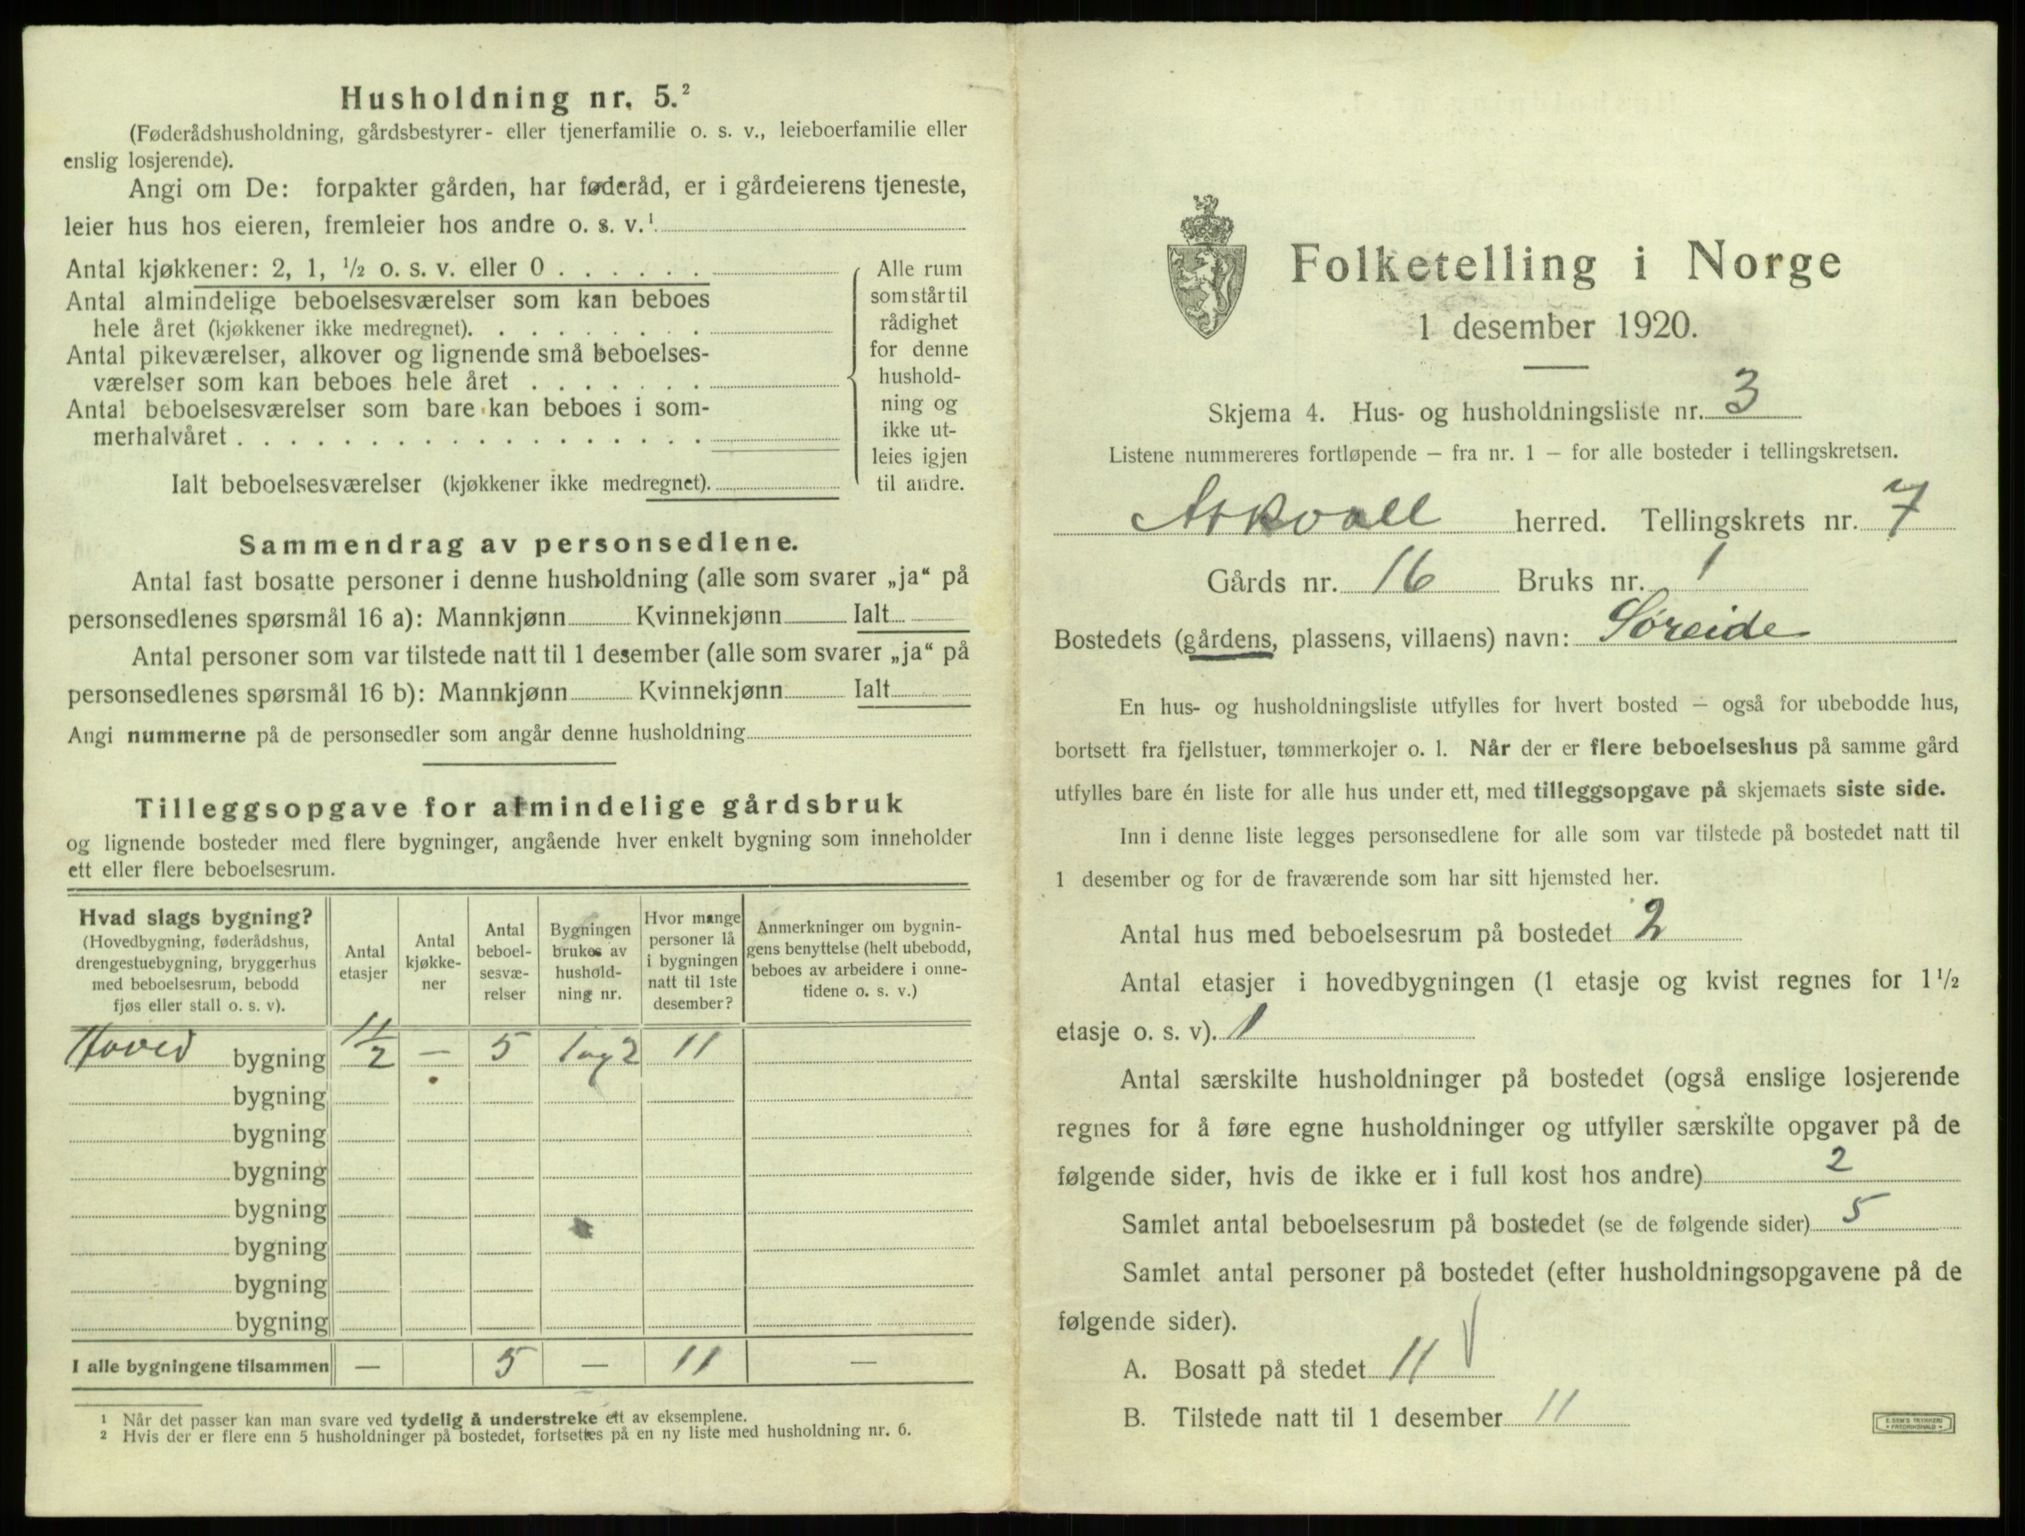 Husholdning nr. 5.²
(Føderådshusholdning, gårdsbestyrer- eller tjenerfamilie o. s. v., leieboerfamilie eller
enslig losjerende).
Angi om De: forpakter gården, har føderåd, er i gårdeierens tjeneste,
leier hus hos eieren, fremleier hos andre o. s. v.¹
Antal kjøkkener: 2, 1, ½ o. s. v. eller 0
Antal almindelige beboelsesværelser som kan beboes
hele året (kjøkkener ikke medregnet).
Antal pikeværelser, alkover og lignende små beboelses-
værelser som kan beboes hele året
Antal beboelsesværelser som bare kan beboes i som-
merhalvåret
Ialt beboelsesværelser (kjøkkener ikke medregnet).
Alle rum
som står til
rådighet
for denne
hushold-
ning og
ikke ut-
leies igjen
til andre.
Sammendrag av personsedlene.
Antal fast bosatte personer i denne husholdning (alle som svarer „ja“ på
personsedlenes spørsmål 16 a): Mannkjønn Kvinnekjønn Ialt
Antal personer som var tilstede natt til 1 desember (alle som svarer „ja“ på
personsedlenes spørsmål 16 b): Mannkjønn Kvinnekjønn Ialt
Angi nummerne på de personsedler som angår denne husholdning
Tilleggsopgave for almindelige gårdsbruk
og lignende bosteder med flere bygninger, angående hver enkelt bygning som inneholder
ett eller flere beboelsesrum.
Hvad slags bygning?
(Hovedbygning, føderådshus,
drengestuebygning, bryggerhus
med beboelsesrum, bebodd
fjøs eller stall o. s. v).
Antal
etasjer
Antal
kjøkke-
ner
Antal
beboel-
sesvæ-
relser
Bygningen
brukes av
hushold-
ning nr.
Hvor mange
personer lå
i bygningen
natt til 1ste
desember?
Anmerkninger om bygnin-
gens benyttelse (helt ubebodd,
beboes av arbeidere i onne-
tidene o. s. v.)
Hoved bygning 1½ — 5 1 og 2 11
bygning
bygning
bygning
bygning
bygning
bygning
bygning
I alle bygningene tilsammen — 5 — 11 —
¹ Når det passer kan man svare ved tydelig å understreke ett av eksemplene.
² Hvis der er flere enn 5 husholdninger på bostedet, fortsettes på en ny liste med husholdning nr. 6.
Folketelling i Norge
1 desember 1920.
Skjema 4. Hus- og husholdningsliste nr. 3
Listene nummereres fortløpende — fra nr. 1 — for alle bosteder i tellingskretsen.
Askvoll herred. Tellingskrets nr. 7
Gårds nr. 16 Bruks nr. 1
Bostedets (gårdens, plassens, villaens) navn: Søreide
En hus- og husholdningsliste utfylles for hvert bosted — også for ubebodde hus,
bortsett fra fjellstuer, tømmerkojer o. l. Når der er flere beboelseshus på samme gård
utfylles bare én liste for alle hus under ett, med tilleggsopgave på skjemaets siste side.
Inn i denne liste legges personsedlene for alle som var tilstede på bostedet natt til
1 desember og for de fraværende som har sitt hjemsted her.
Antal hus med beboelsesrum på bostedet 2
Antal etasjer i hovedbygningen (1 etasje og kvist regnes for 1½
etasje o. s. v). 1
Antal særskilte husholdninger på bostedet (også enslige losjerende
regnes for å føre egne husholdninger og utfyller særskilte opgaver på de
følgende sider, hvis de ikke er i full kost hos andre) 2
Samlet antal beboelsesrum på bostedet (se de følgende sider) 5
Samlet antal personer på bostedet (efter husholdningsopgavene på de
følgende sider).
A. Bosatt på stedet 11
B. Tilstede natt til 1 desember 11